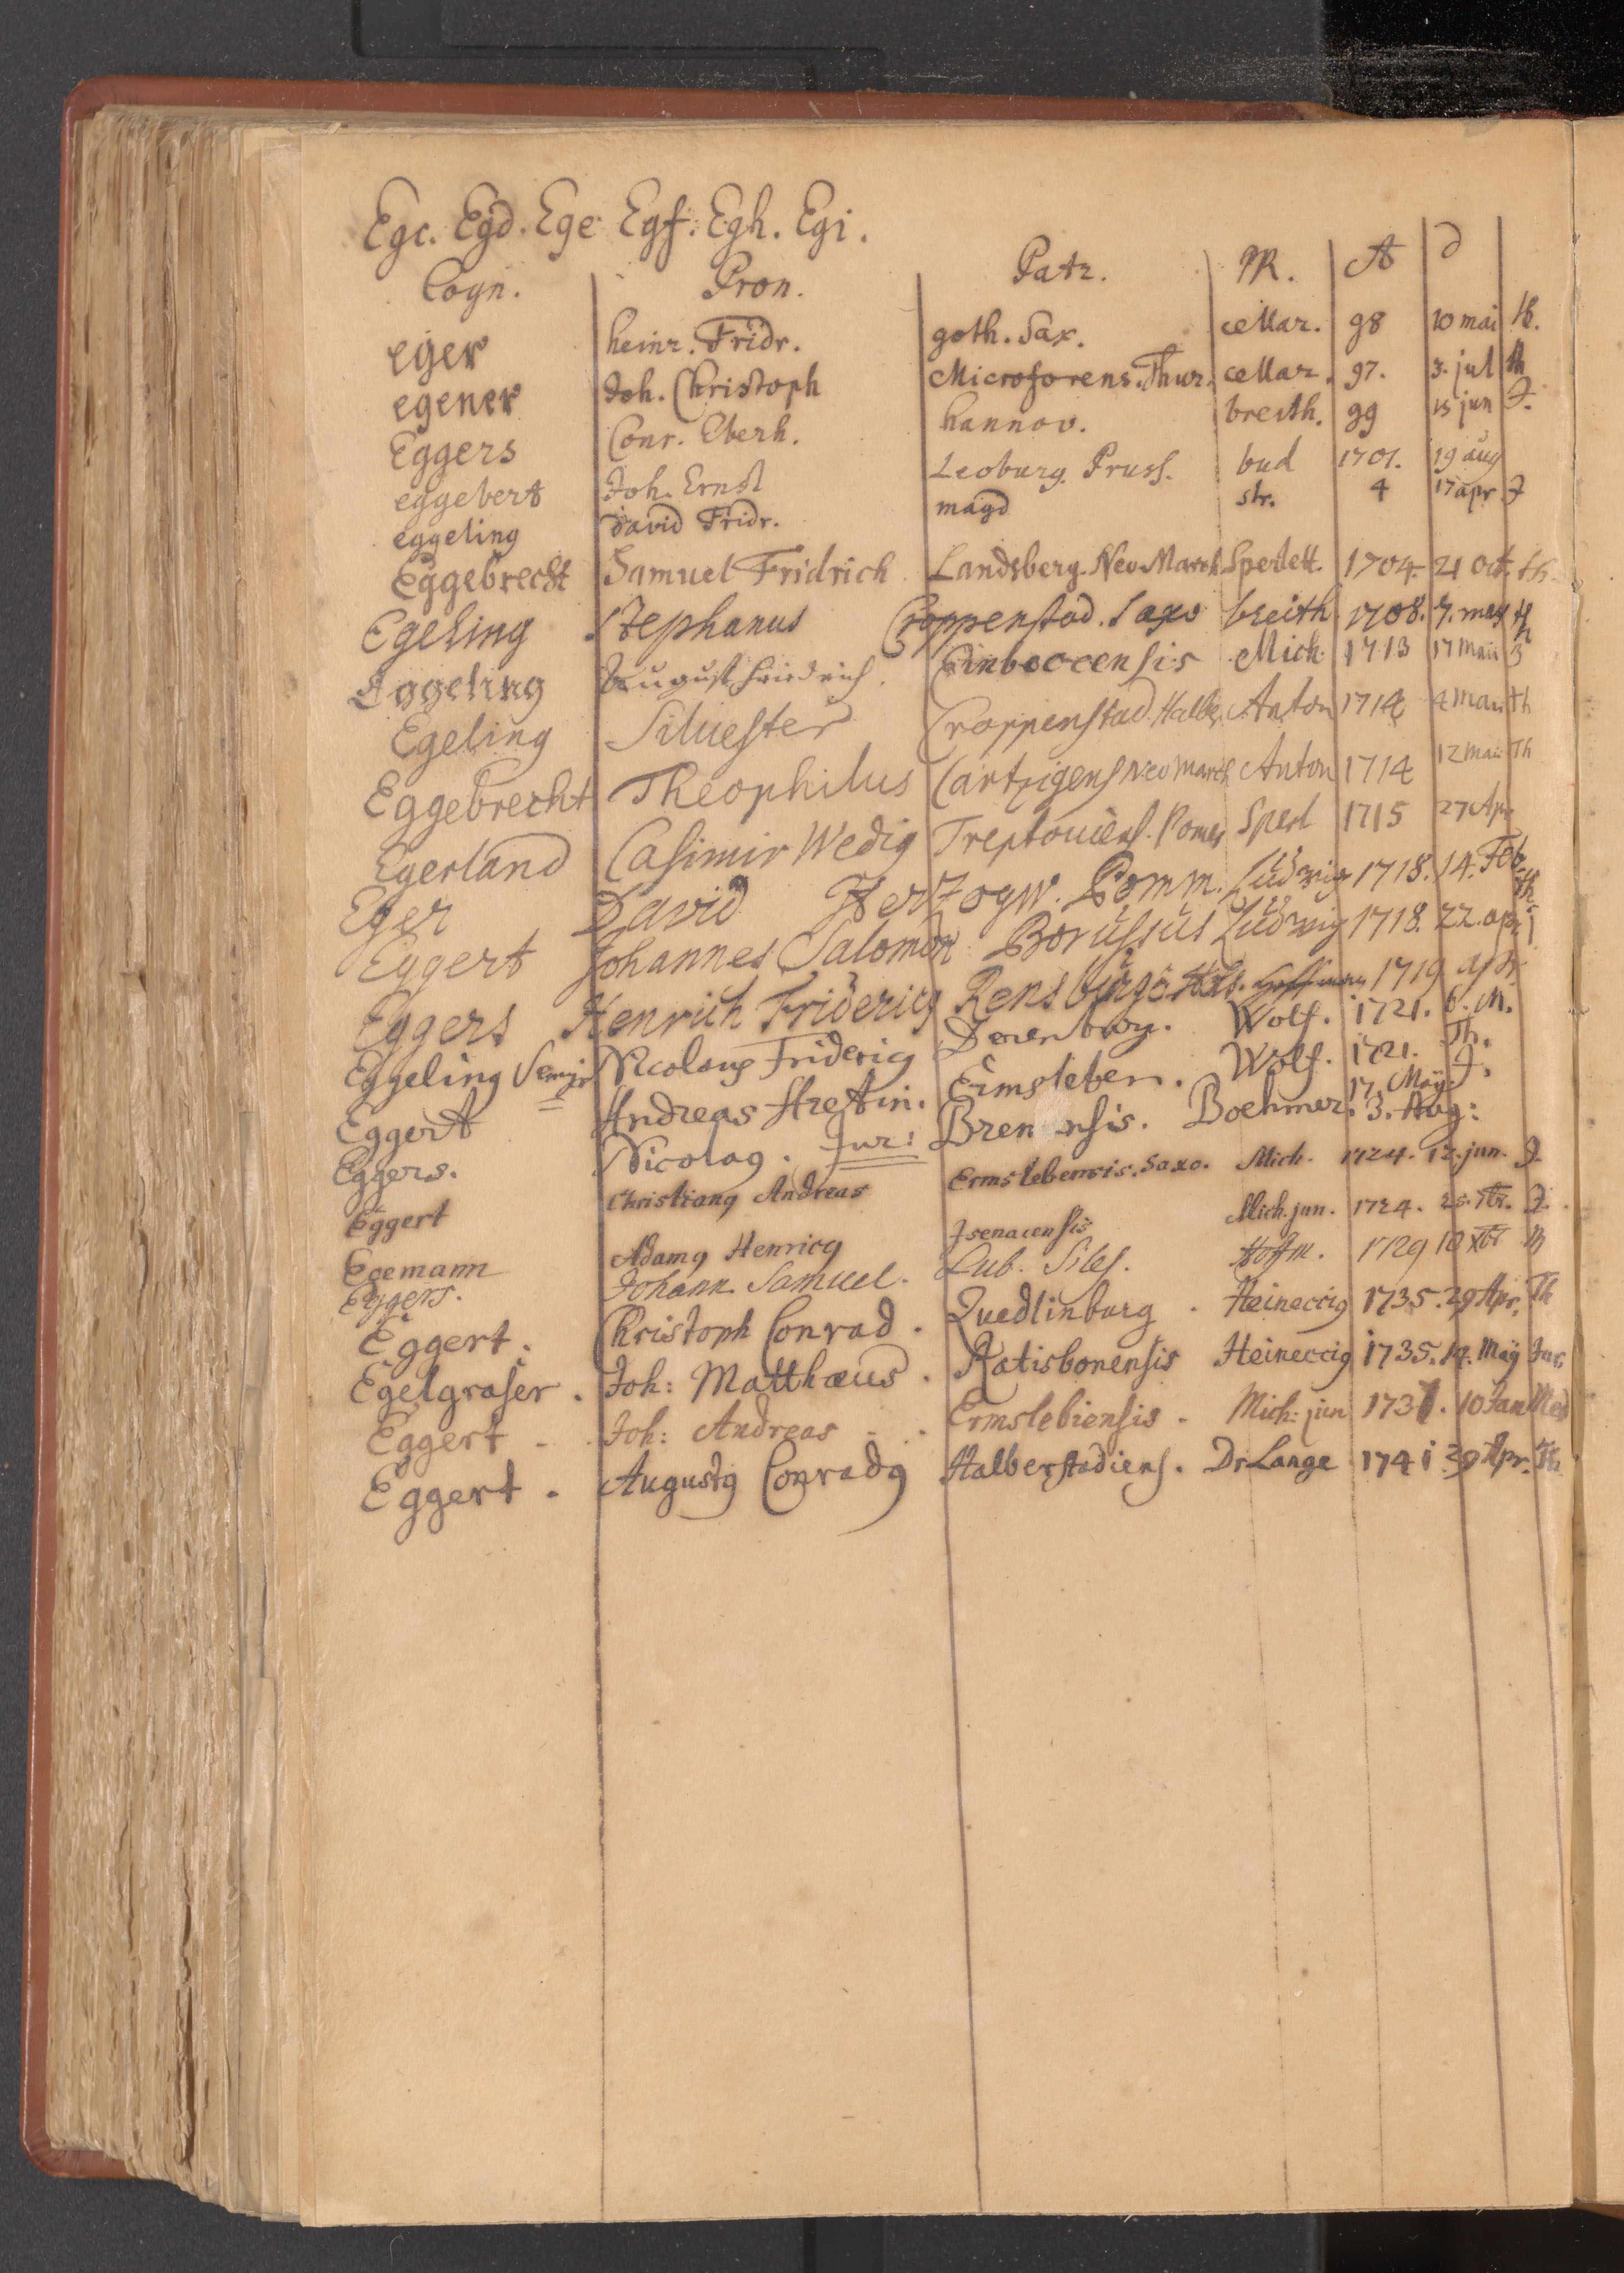 Egc. Egd. Ege Egf. Egh. Egi.
Cogn. Pron. Patr. PR. A d
eger heinr. Fridr. goth. Sax. cellar. 98 10 mai th.
egener Joh. Christoph Microforens. Thur. cellar. 97. 3. jul th
Eggers Conr. Eberh. hannov. breith. 99 15 jun J.
eggebert Joh. Ernst Leoburg. Pruss. bud 1701. 19 aug
eggeling david Fridr. magd str. 4 17 apr J
Eggebrecht Samuel Fridrich Landsberg. Neo March. Sperlett. 1704. 21 oct. th.
Egeling Stephanus Croppenstad. Saxo breith. 1708. 7. may th
Eggeling August Friedrich. Einboccensis Mich. 1713 17 maii
Egeling Siluester Croppenstad. Halb. Anton 1714 4 maii th
Eggebrecht Theophilus Cartzigens Neo March Anton 1714 12 maii Th
Egerland Casimir Wedig Treptouiens. Pomer Sperl 1715 27 Apr
Eger David Hertzogw. Pomm. Ludwig 1718. 14. Feb. th.
Eggert Johannes Salomon Borussus Ludwig 1718. 22. apr. j
Eggers Henrich Fridericq Rensburgo Hols. Hoffmann 1719 apr.
Eggeling Nicolaus Fridericq Derenburg. Wolf. 1721. 6. M.
Eggert Andreas Ermsleben. Wolf. 1721. Th.
Eggers. Nicolaq. Jur: Bremensis. Boehmer. 17. May. J. 3. Aug:
Eggert Christianq Andreas Ermslebensis. Saxo. Mich. 1724. 12. jun. J.
Egemann Adamq Henricq Isenacensis Mich. jun. 1724. J.
Eggers. Johann Samuel. Lub. Siles. Hoffm. 1729 10 Xbr
Eggert. Christoph Conrad. Quedlinburg. Heinecciq 1735. 29 Apr. Th
Egelgraser. Joh: Matthaeus. Ratisbonensis Heineccig 1735. 14. May Jur.
Eggert. Joh: Andreas. Ermslebiensis. Mich: jun 1737. 10 Jan Med
Eggert. Augustq Conradq Halberstadiens. Dr Lange 1741 30 Apr. Th